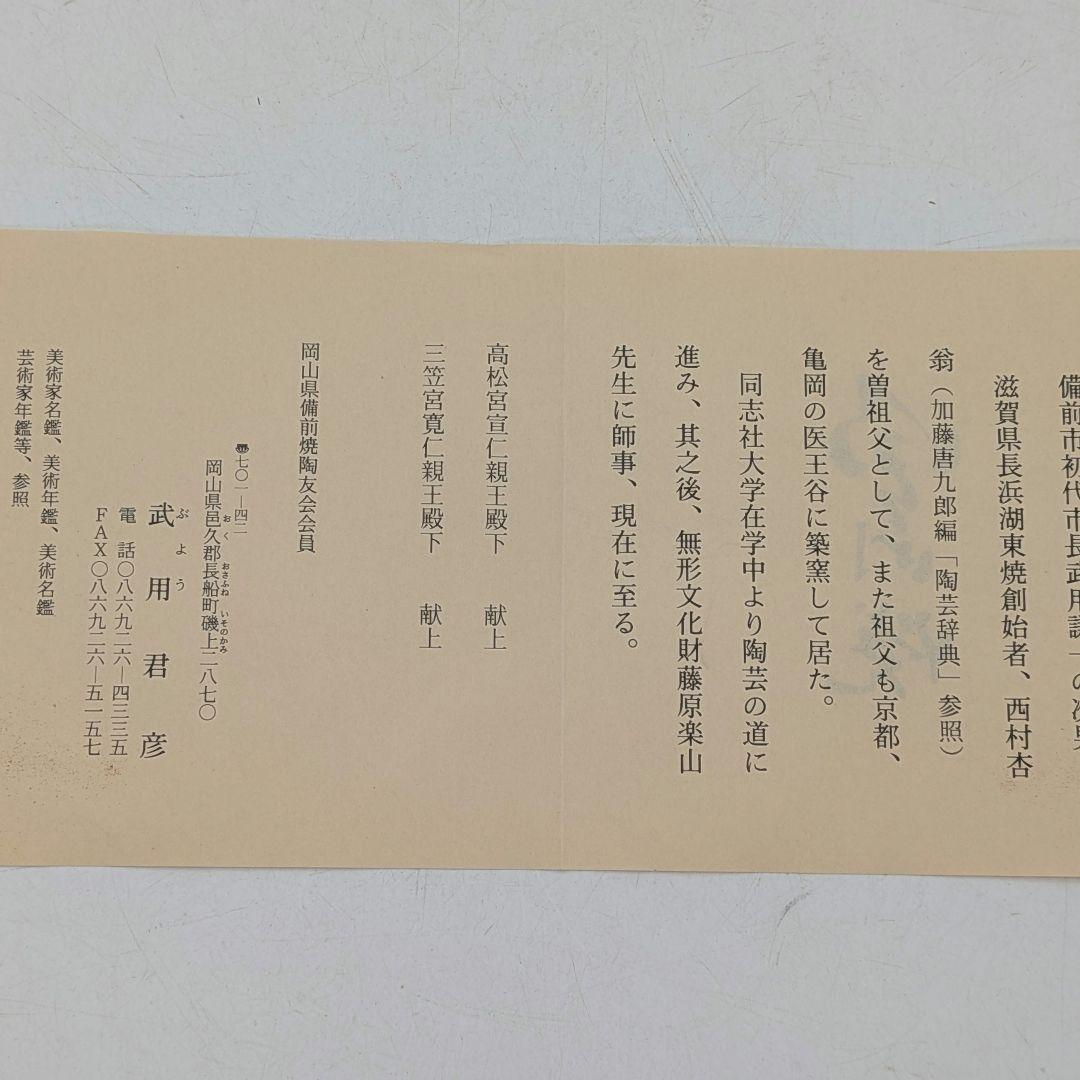 備前市初代市長武用謙一の次男
滋賀県長浜湖東焼創始者、西村杏
翁（加藤唐九郎編「陶芸辞典」参照）
を曽祖父として、また祖父も京都、
亀岡の医王谷に築窯して居た。
同志社大学在学中より陶芸の道に
進み、其之後、無形文化財藤原楽山
先生に師事、現在に至る。
高松宮宣仁親王殿下　献上
三笠宮寛仁親王殿下　献上
岡山県備前焼陶友会会員
〒七〇一―四二
岡山県邑久郡長船町磯上二八七〇
おく　おさふね　いそのかみ
武用君彦
ぶよう
電話〇八六九二六―四三三五
FAX〇八六九二六―五一五七
美術家名鑑、美術年鑑、美術名鑑
芸術家年鑑等、参照